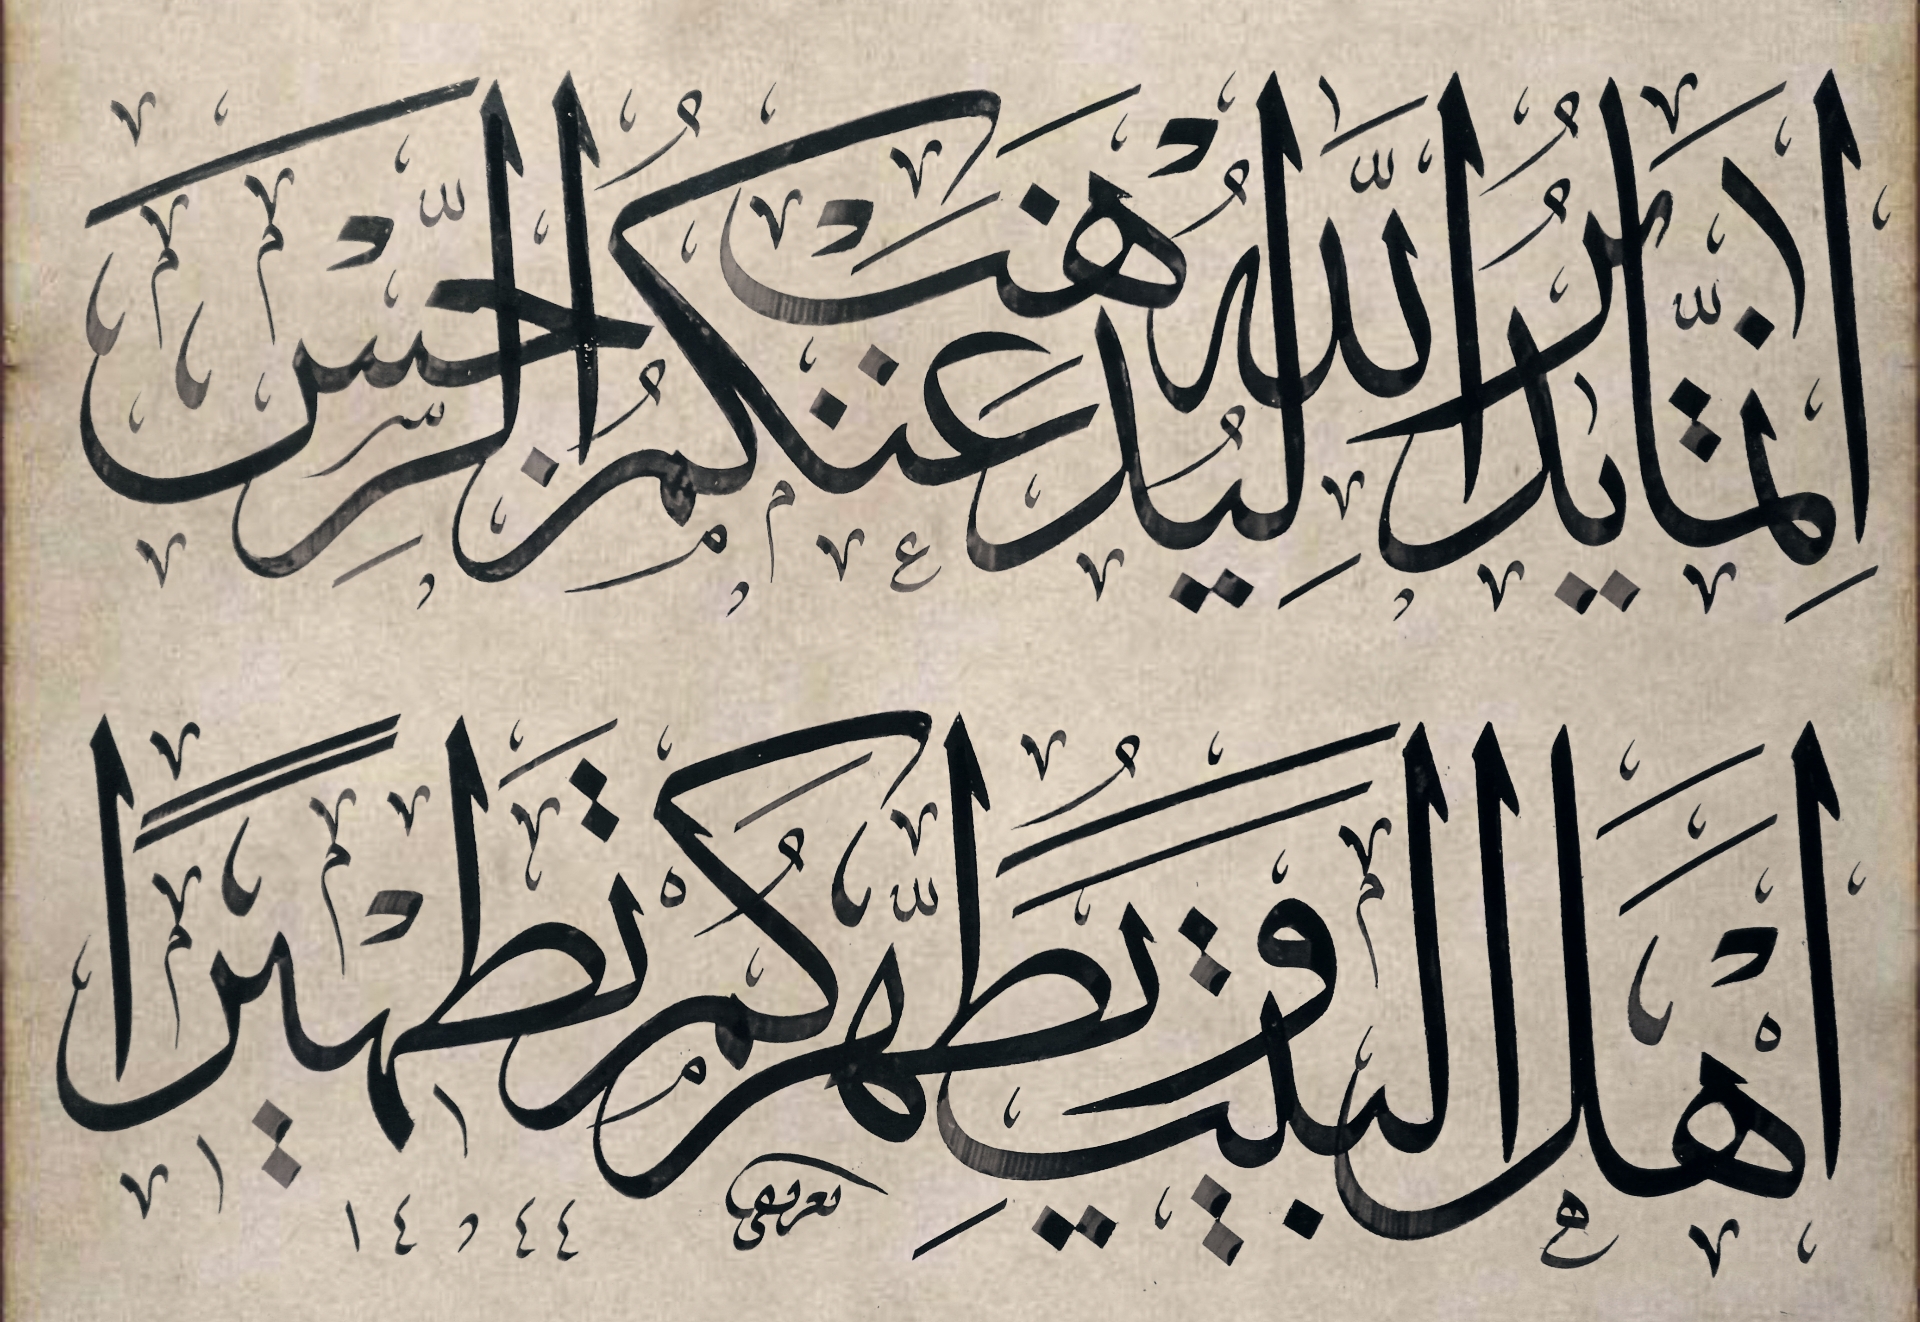 إِنَّمَا يُرِيدُ اللَّهُ لِيُذْهِبَ عَنكُمُ الرِّجْسَ
أَهْلَ الْبَيْتِ وَيُطَهِّرَكُمْ تَطْهِيرًا
١٤٤٤